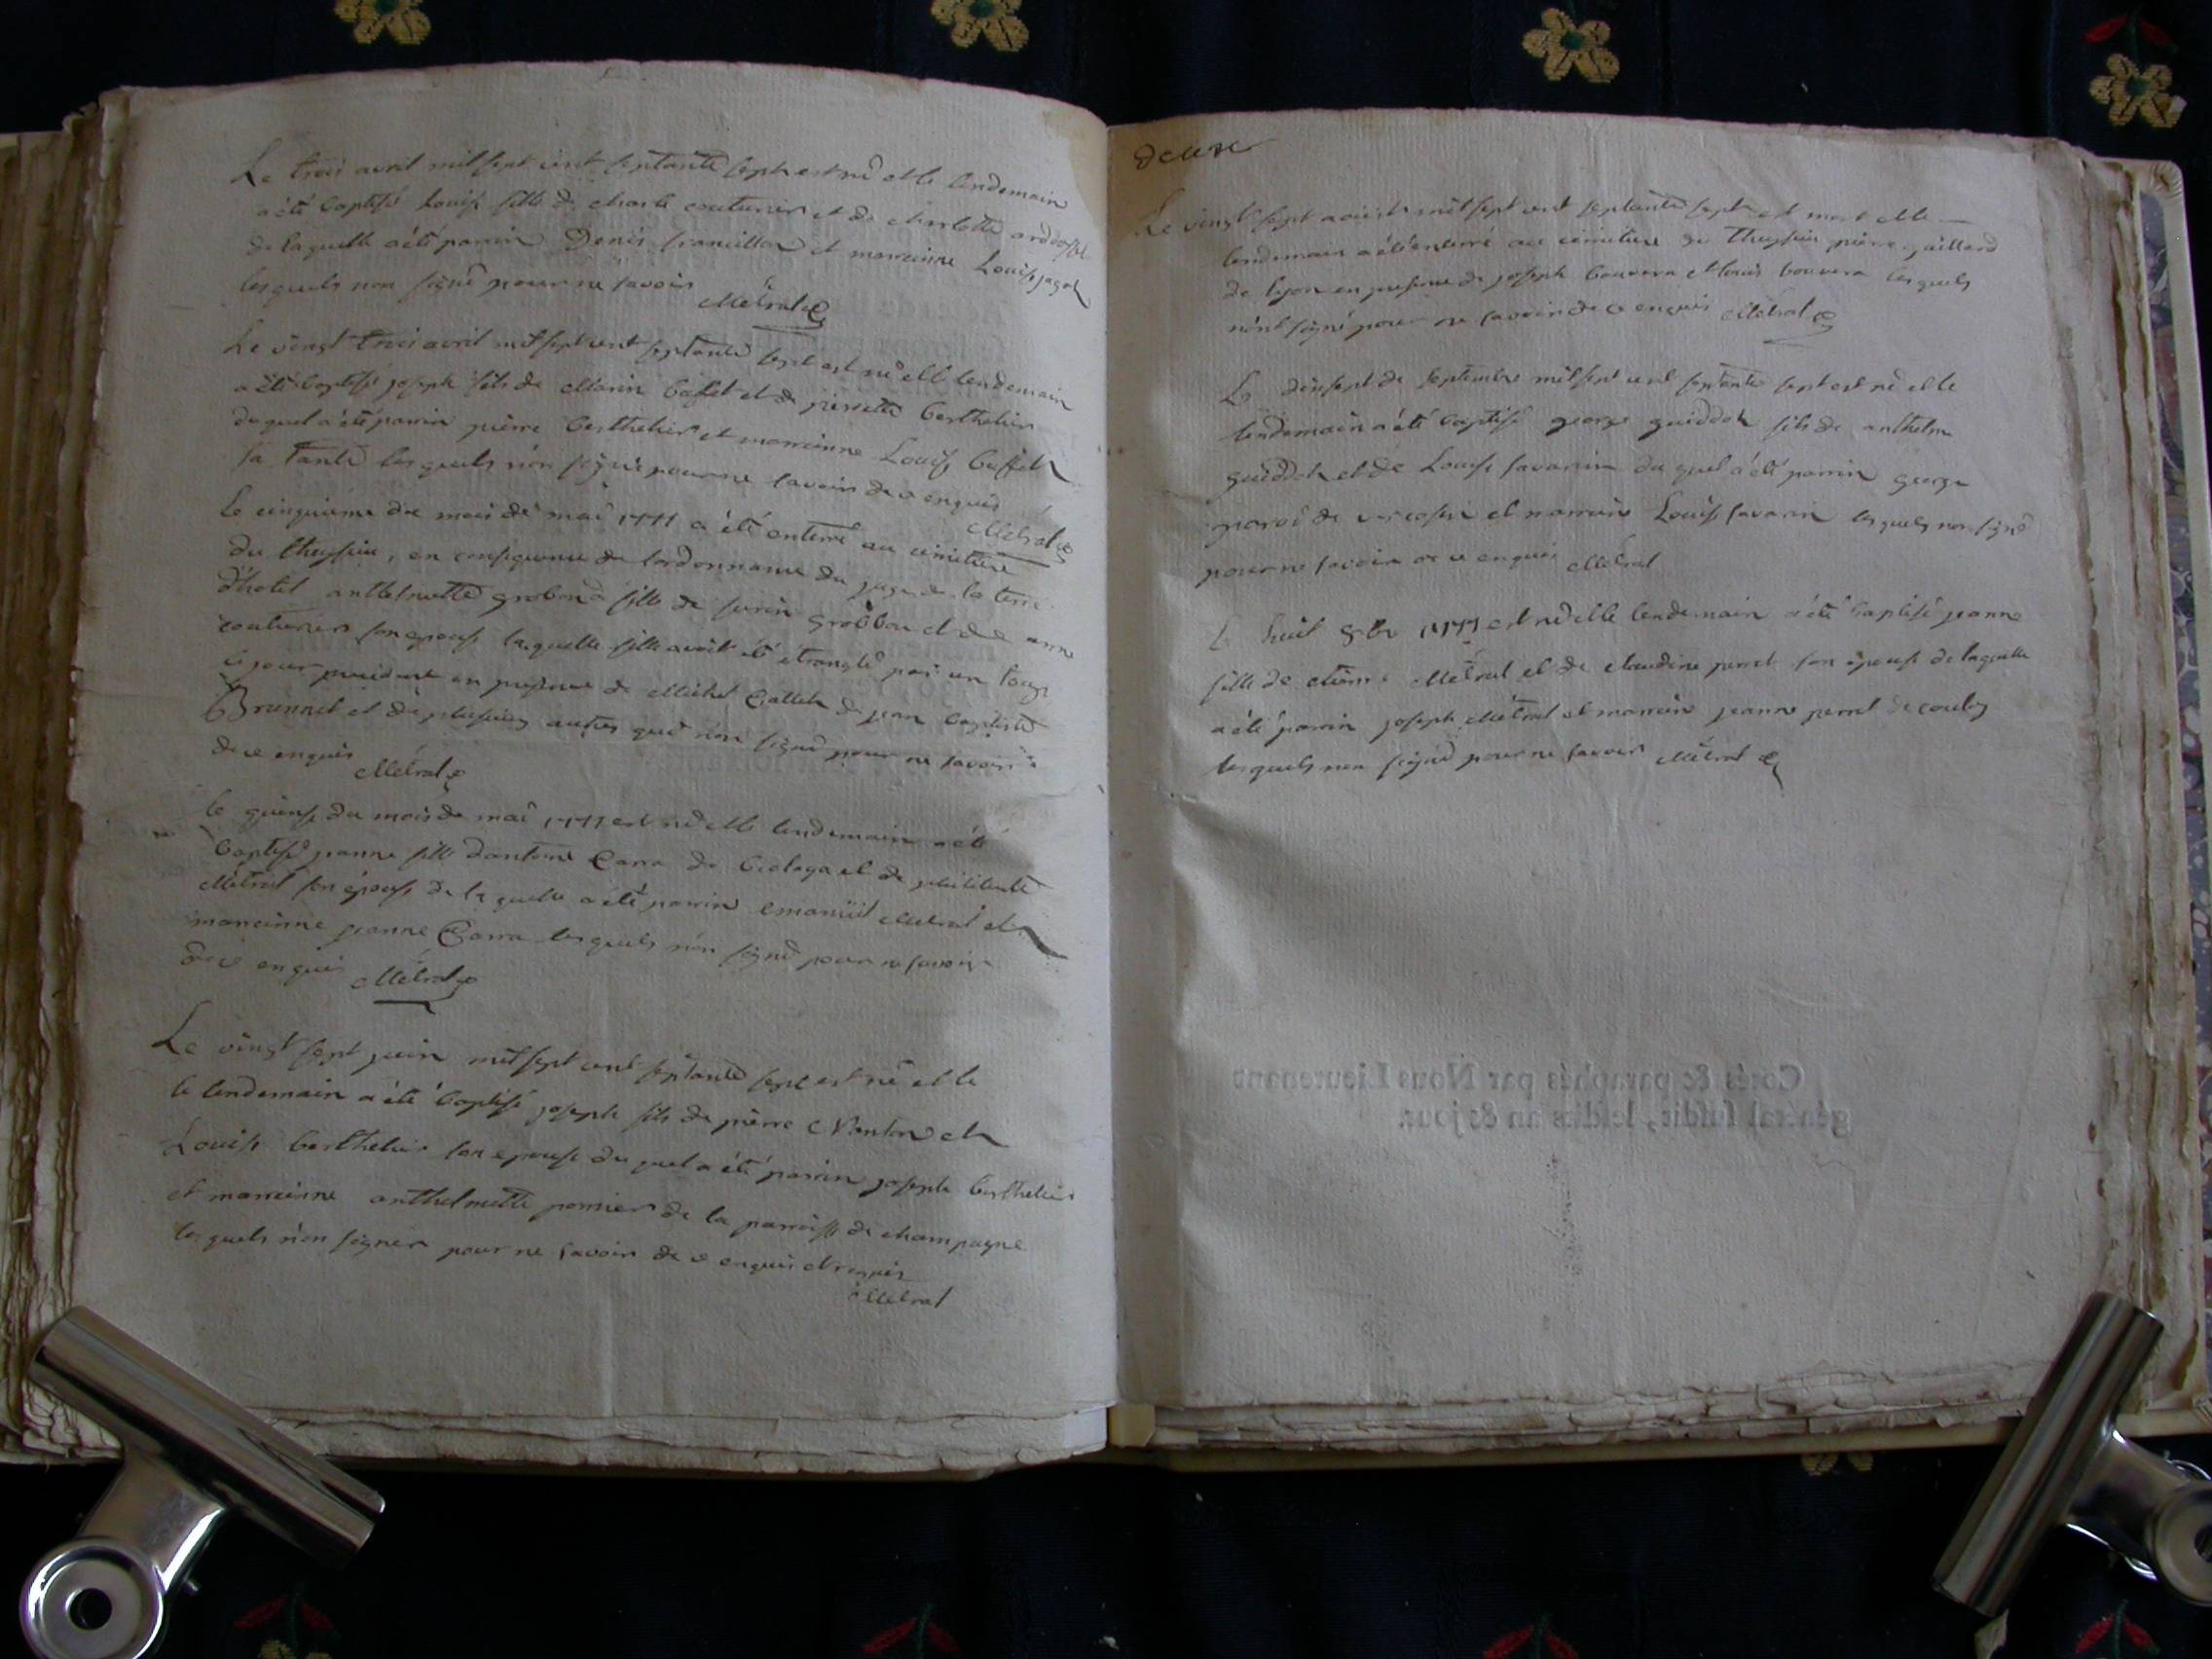 Le trois avril mil sept cent septante sept est né et le lendemain
a été baptisé Louise fille de charle couturier et de charlotte
de laquelle a été parrin Denis francillon et marreinne Louise jagot
les quels non signé pour ne savoir
Métral
Le vingt trois avril mil sept cent septante sept est né et le lendemain
a été baptisé joseph fils de Marin baffet et de pierrette berthelier
du quel a été parrin pierre berthelier et marreinne Louise
sa tante les quels n'on signé pour ne savoir de ce enquis
Métral
le cinquième du mois de mai 1777 a été enterré au cimitiere
du theysieu, en consequence de l'ordonnance du juge de la terre
d'hotel anthelmette fille de et de anne
couturier son epouse laquelle fille avoit été etranglé par un loup
le jour precedent en presence de Michel Callet de jean baptiste
Brunnet et de plusieurs autres qui n'on signé pour ne savoir
de ce enquis Métral
le quinze du mois de mai 1777 est né et le lendemain a été
baptisé jeanne fille d'antoine Carra de et de
Métral son épouse de la quelle a été parrin emanüel Métral et
marreinne jeanne Carra les quels n'on signé pour ne savoir
de ce enquis Métral
Le vingt sept juin mil sept cent septante sept est né et le
le lendemain a été baptisé joseph fils de pierre et
Louise berthelier son epouse du quel a été parrin joseph berthelier
et marreinne anthelmette de la parroisse de champagne
les quels n'on signer pour ne savoir de ce enquis et requis
Métral
deux
Le vingt sept aoust mil sept cent septante sept est mort et le
lendemain a été enterré au cimitiere de theysieu pierre gaillard
de lyon en presence de joseph bouvera et Louis bouvera les quels
n'ont signé pour ne savoir de ce enquis Métral
Le dixsept de septembre mil sept cent septante sept est né et le
lendemain a été baptisé george guiddot fils de anthelme
guiddot et de Louise savarin du quel a été parrin george
de et marrein Louise savarin les quels non signé
pour ne savoir de ce enquis Métral
Le huit 8bre 1777 est né et le lendemain a été baptisé jeanne
fille de etienne Métral et de claudine perret son épouse de laquelle
a été parrin joseph Métral et marrein jeanne perret de
les quels non signé pour ne savoir Métral
Cotés & paraphés par Nous Lieutenant
général susdit, lesdits an & jour.